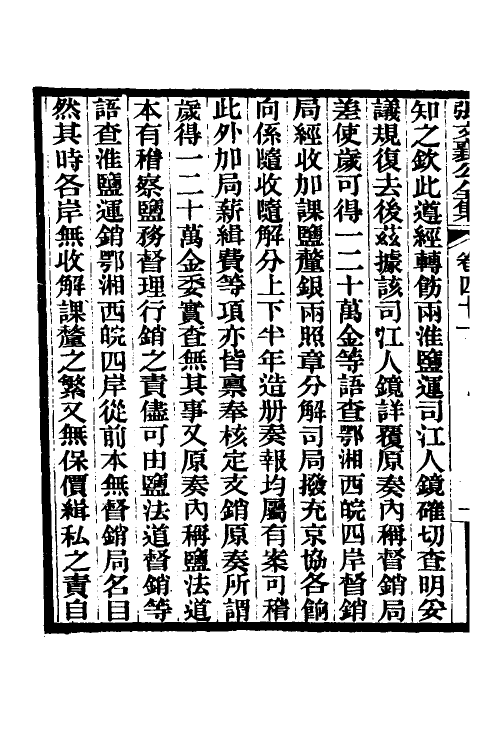 張文襄公全集 卷四十一
知之欽此遵經轉飭兩淮鹽運司江人鏡確切查明妥
議規復去後茲據該司江人鏡詳覆原奏內稱督銷局
差使歲可得一二十萬金等語查鄂湘西皖四岸督銷
局經收加課鹽釐銀兩照章分解司局撥充京協各餉
向係隨收隨解分上下半年造册奏報均屬有案可稽
此外加局薪緝費等項亦皆稟奉核定支銷原奏所謂
歲得一二十萬金委實查無其事又原奏內稱鹽法道
本有稽察鹽務督理行銷之責儘可由鹽法道督銷等
語查淮鹽運銷鄂湘西皖四岸從前本無督銷局名目
然其時各岸無收解課釐之繁又無保價緝私之責自